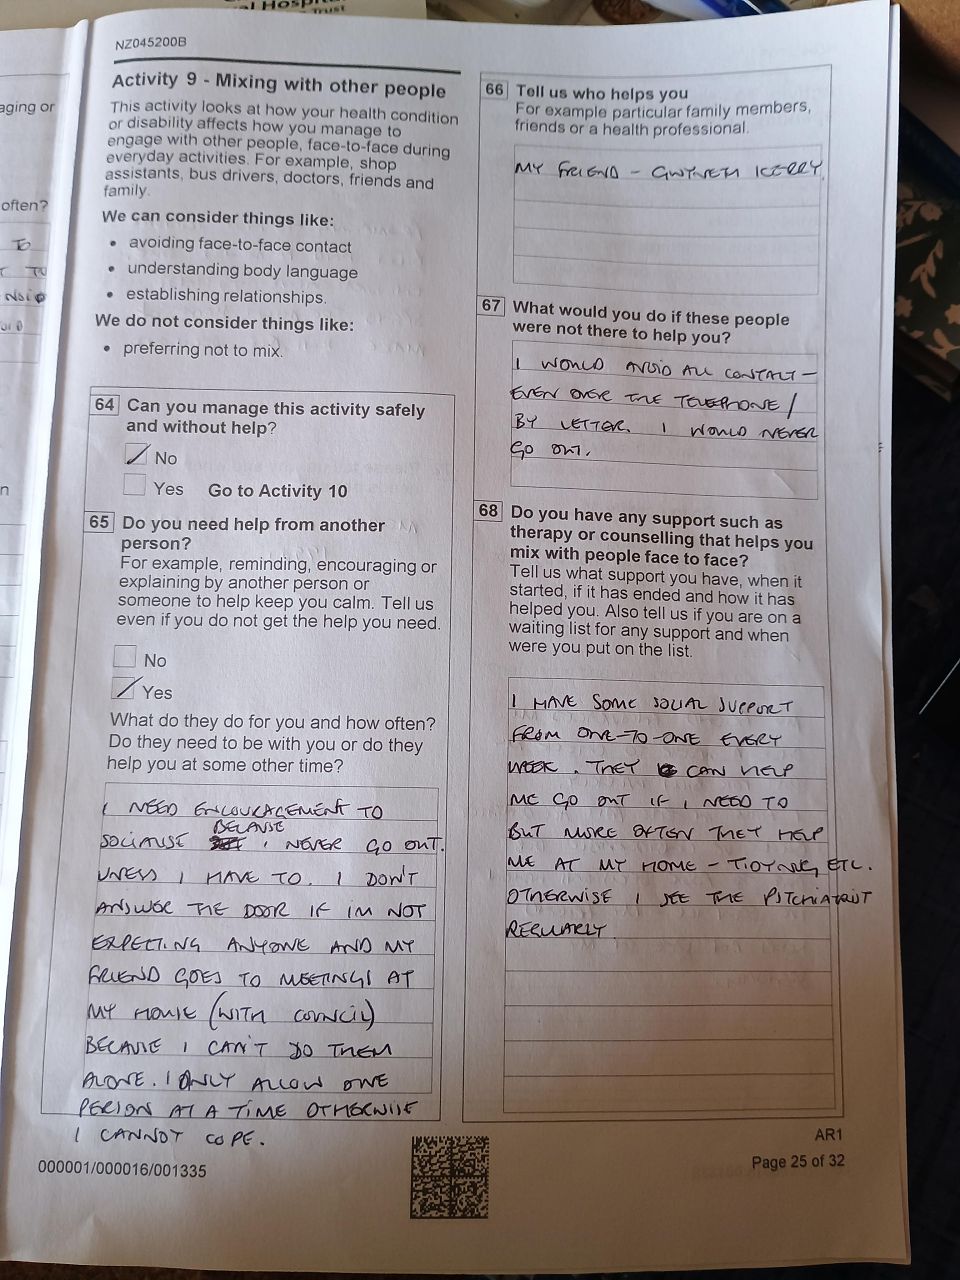 al Hospital
Trust
aging or
often?
TO
TO
n
NZ045200B
Activity 9 - Mixing with other people
This activity looks at how your health condition
or disability affects how you manage to
engage with other people, face-to-face during
everyday activities. For example, shop
assistants, bus drivers, doctors, friends and
family.
We can consider things like:
• avoiding face-to-face contact
• understanding body language
• establishing relationships.
We do not consider things like:
• preferring not to mix.
64 Can you manage this activity safely
and without help?
No
Yes Go to Activity 10
65 Do you need help from another
person?
For example, reminding, encouraging or
explaining by another person or
someone to help keep you calm. Tell us
even if you do not get the help you need.
No
Yes
What do they do for you and how often?
Do they need to be with you or do they
help you at some other time?
I NEED ENCOURAGEMENT TO
SOCIALISE BECAUSE I NEVER GO OUT
UNESS I HAVE TO. I DON'T
ANSWER THE DOOR IF IM NOT
EXPECTING ANYONE AND MY
FRIEND GOES TO MEETINGS AT
MY HOUSE (WITH COUNCIL)
BECAUSE I CAN'T DO THEM
ALONE. I ONLY ALLOW ONE
PERSON AT A TIME OTHERWISE
I CANNOT COPE.
000001/000016/001335
66 Tell us who helps you
For example particular family members,
friends or a health professional.
MY FRIEND - GWYNETH KERRY
67 What would you do if these people
were not there to help you?
I WOULD AVOID ALL CONTACT -
EVEN OVER THE TELEPHONE /
BY LETTER. I WOULD NEVER
GO OUT.
68 Do you have any support such as
therapy or counselling that helps you
mix with people face to face?
Tell us what support you have, when it
started, if it has ended and how it has
helped you. Also tell us if you are on a
waiting list for any support and when
were you put on the list.
I HAVE SOME SOCIAL SUPPORT
FROM ONE-TO-ONE EVERY
WEEK. THEY CAN HELP
ME GO OUT IF I NEED TO
BUT MORE OFTEN THEY HELP
ME AT MY HOME - TIDYING ETC.
OTHERWISE I SEE THE PSYCHIATRIST
REGULARLY
AR1
Page 25 of 32